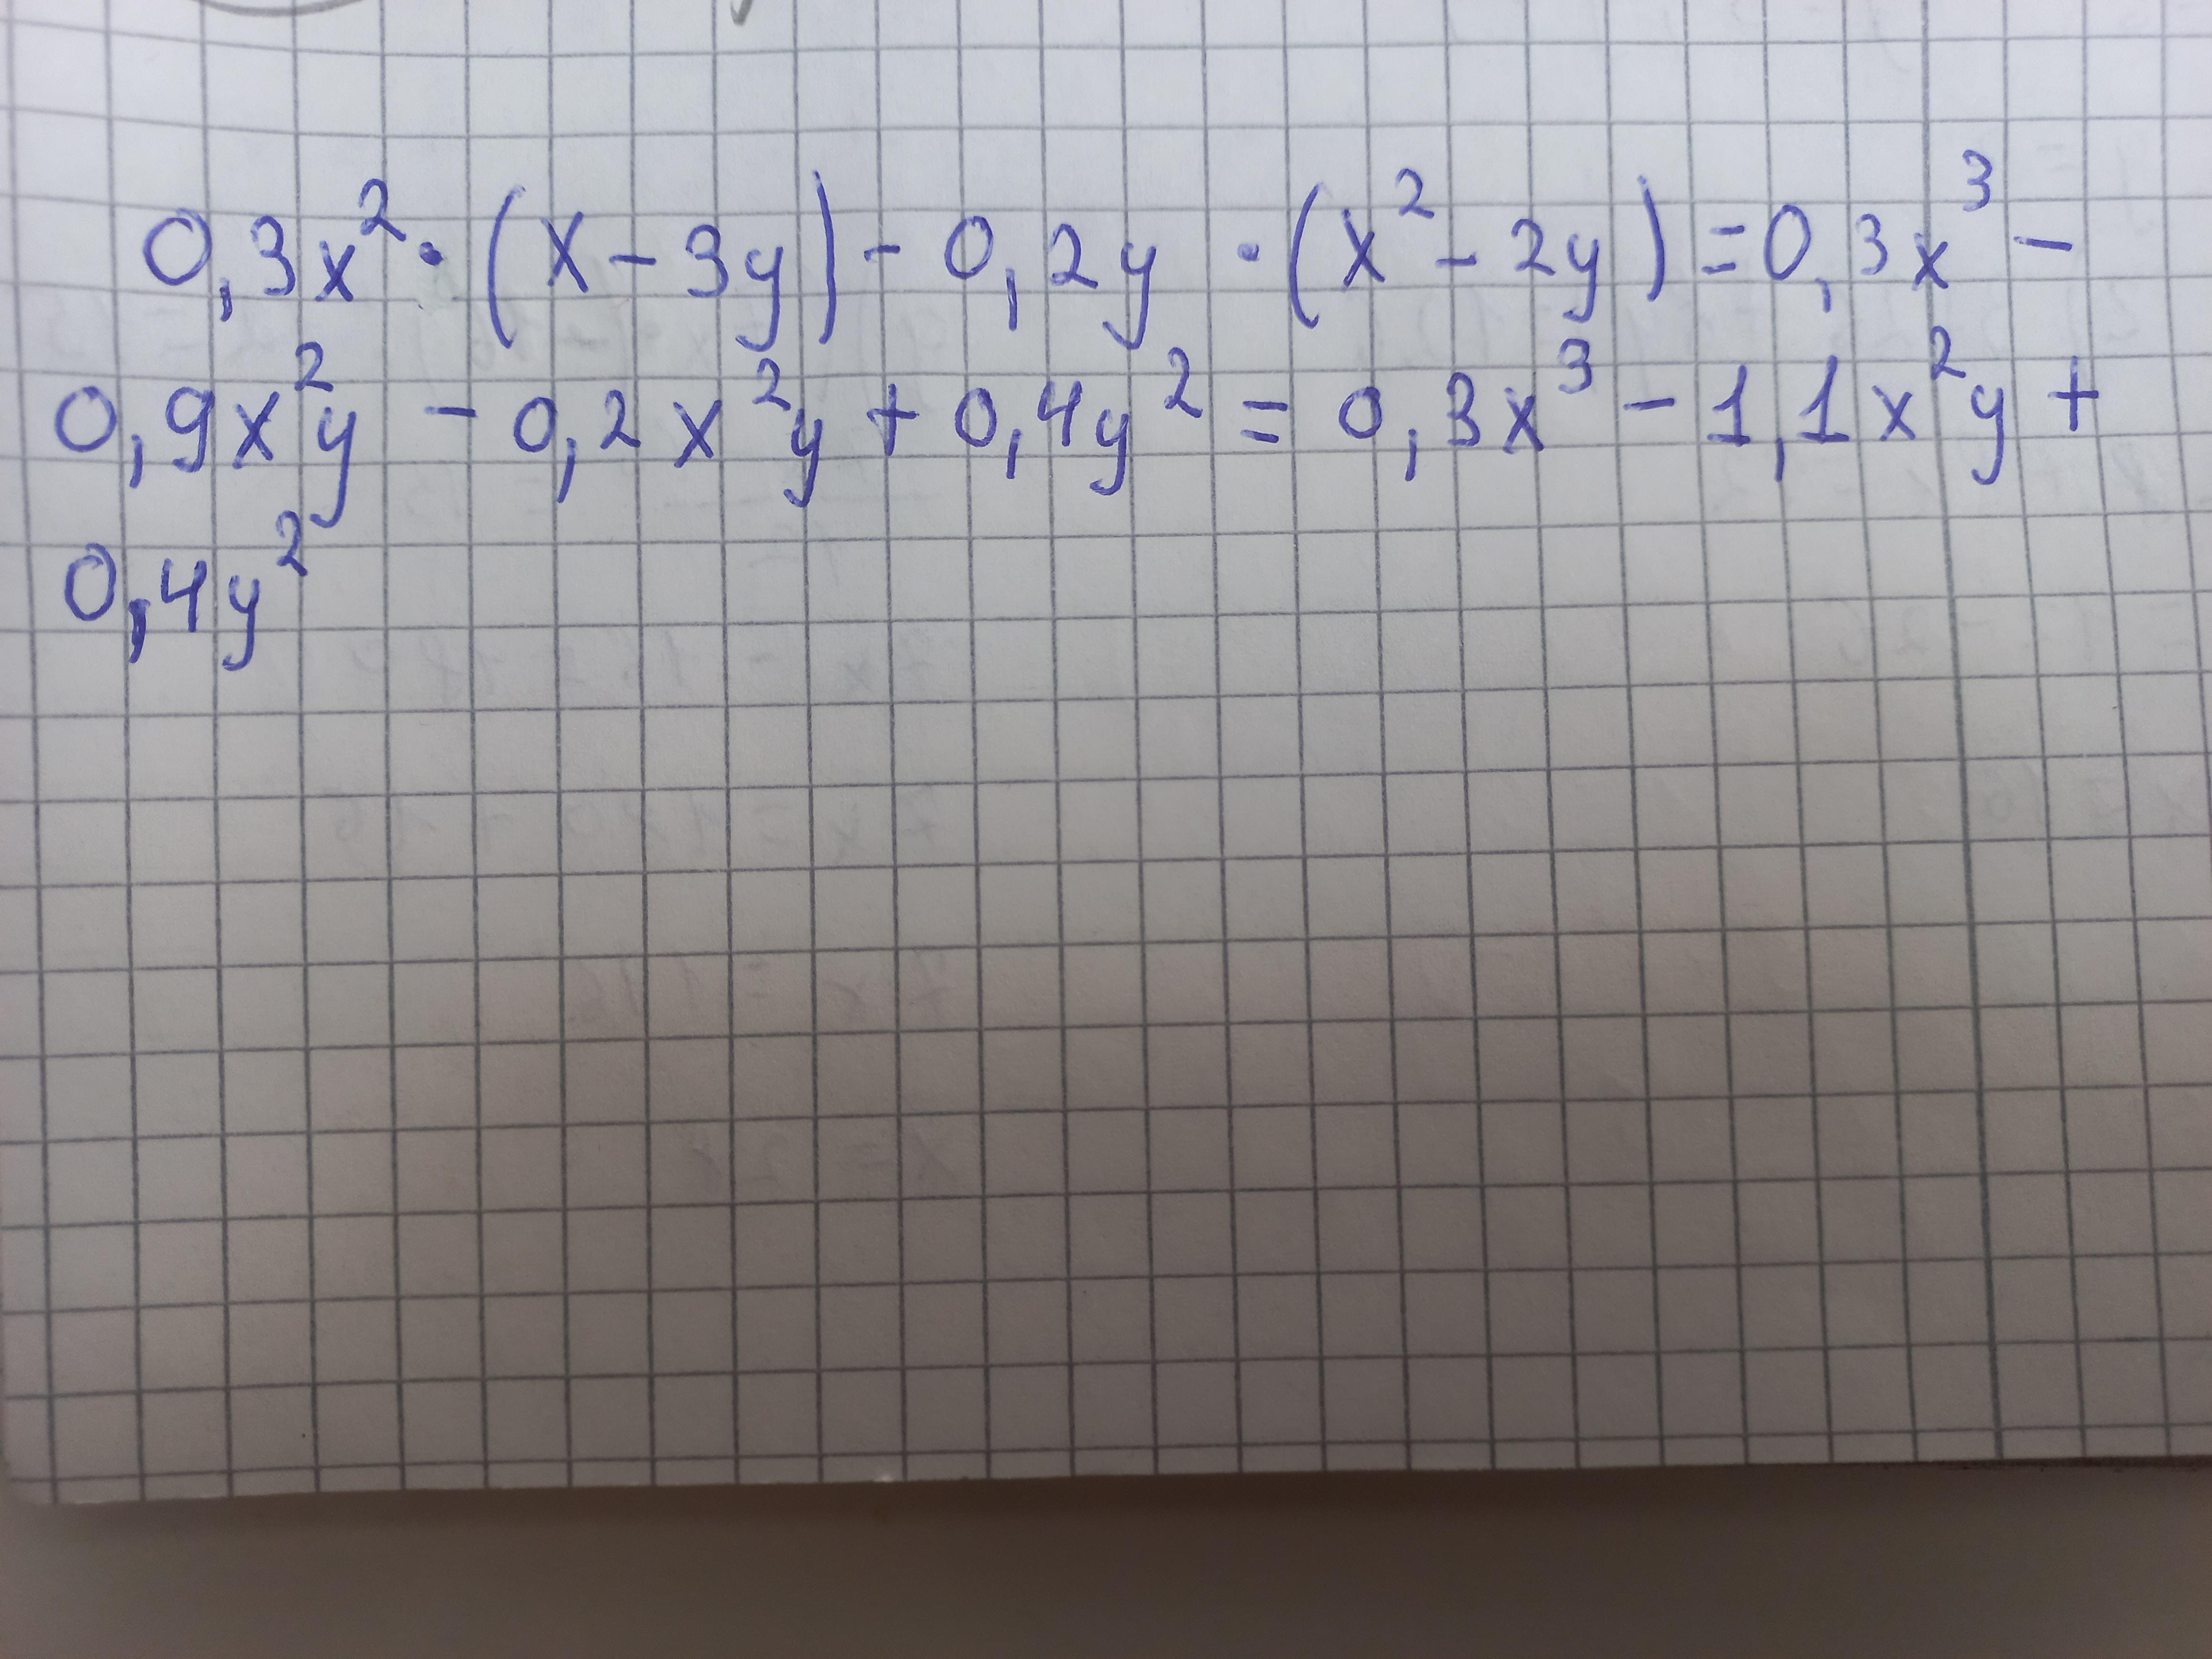 0,3x²·(x-3y)-0,2y·(x²-2y)=0,3x³-
0,9x²y-0,2x²y+0,4y²=0,3x³-1,1x²y+
0,4y²